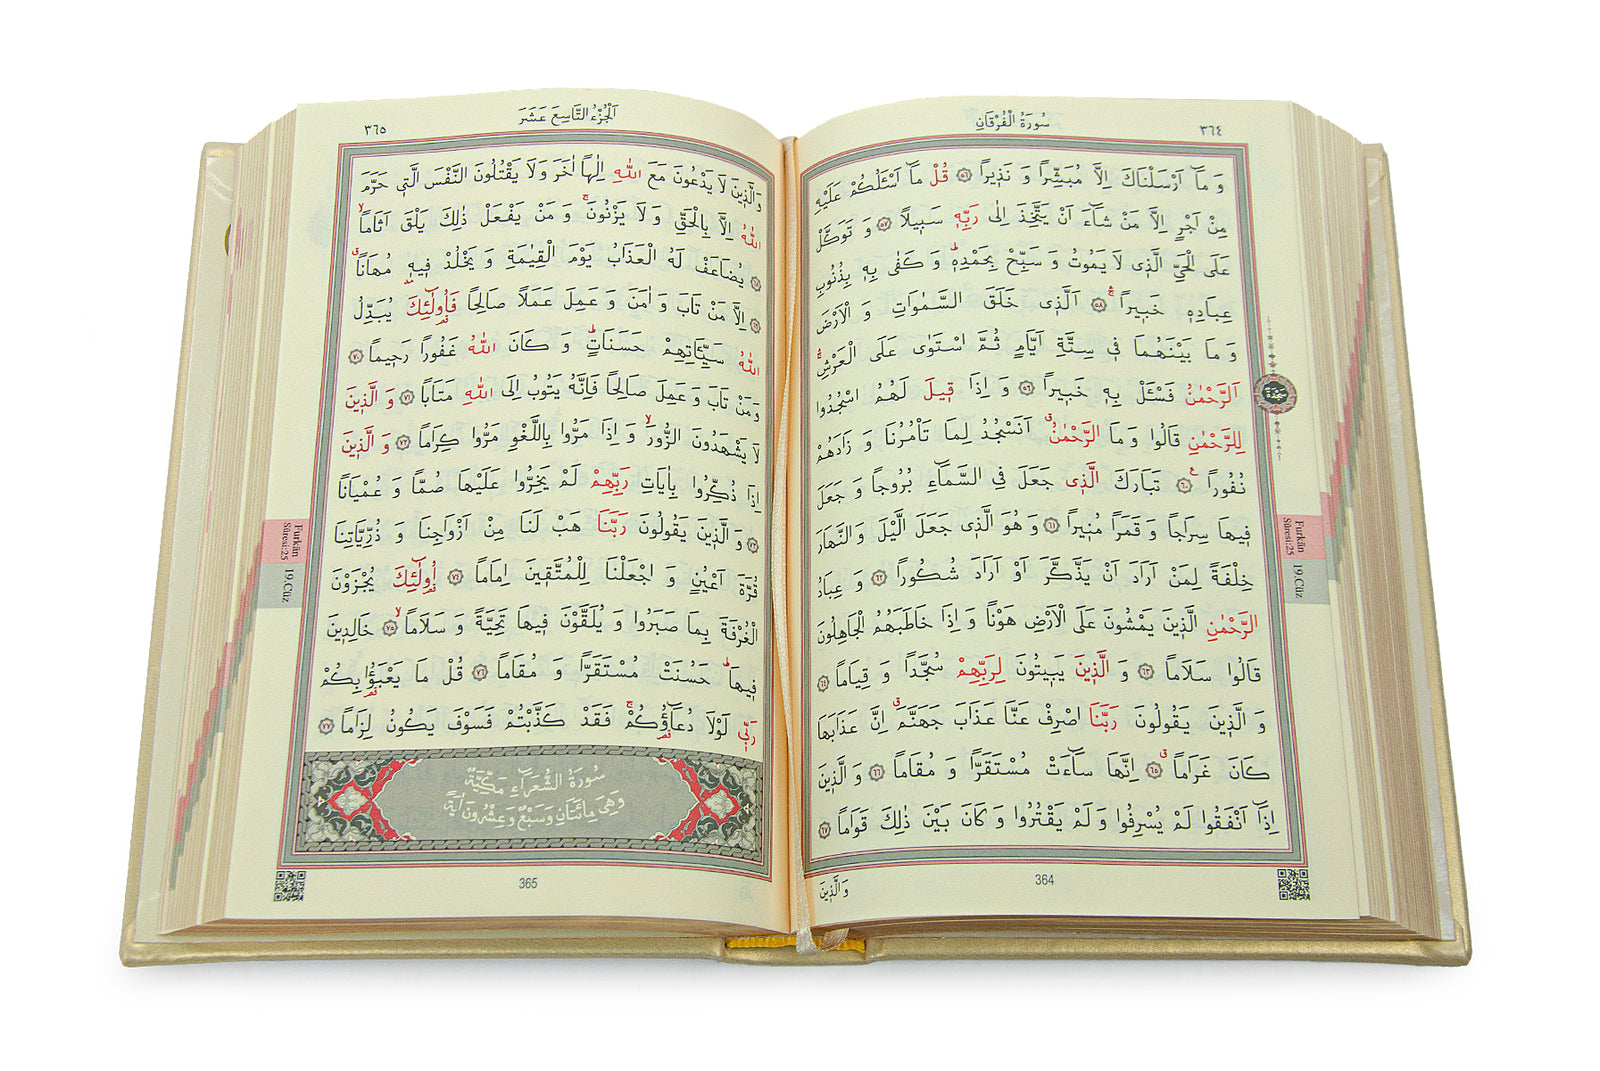 سُورَةُ الْفُرْقَانِ
٣٦٤
وَ مَٓا اَرْسَلْنَاكَ اِلَّا مُبَشِّراً وَ نَذٖيراً ﴿٥٦﴾ قُلْ مَٓا اَسْـَٔلُكُمْ عَلَيْهِ
مِنْ اَجْرٍ اِلَّا مَنْ شَٓاءَ اَنْ يَتَّخِذَ اِلٰى رَبِّهٖ سَبٖيلاً ﴿٥٧﴾ وَ تَوَكَّلْ
عَلَى الْحَيِّ الَّذٖى لَا يَمُوتُ وَ سَبِّحْ بِحَمْدِهٖؕ وَ كَفٰى بِهٖ بِذُنُوبِ
عِبَادِهٖ خَبٖيراً ﴿٥٨﴾ اَلَّذٖى خَلَقَ السَّمٰوَاتِ وَ الْاَرْضَ
وَ مَا بَيْنَهُمَا فٖى سِتَّةِ اَيَّامٍ ثُمَّ اسْتَوٰى عَلَى الْعَرْشِۚ
اَلرَّحْمٰنُ فَسْـَٔلْ بِهٖ خَبٖيراً ﴿٥٩﴾ وَ اِذَا قٖيلَ لَهُمُ اسْجُدُوا
لِلرَّحْمٰنِ قَالُوا وَ مَا الرَّحْمٰنُࣗ اَنَسْجُدُ لِمَا تَأْمُرُنَا وَ زَادَهُمْ
نُفُوراً ﴿٦٠﴾ تَبَارَكَ الَّذٖى جَعَلَ فِى السَّمَٓاءِ بُرُوجاً وَ جَعَلَ
فٖيهَا سِرَاجاً وَ قَمَراً مُنٖيراً ﴿٦١﴾ وَ هُوَ الَّذٖى جَعَلَ الَّيْلَ وَ النَّهَارَ
خِلْفَةً لِمَنْ اَرَادَ اَنْ يَذَّكَّرَ اَوْ اَرَادَ شُكُوراً ﴿٦٢﴾ وَ عِبَادُ
الرَّحْمٰنِ الَّذٖينَ يَمْشُونَ عَلَى الْاَرْضِ هَوْناً وَ اِذَا خَاطَبَهُمُ الْجَاهِلُونَ
قَالُوا سَلَاماً ﴿٦٣﴾ وَ الَّذٖينَ يَبٖيتُونَ لِرَبِّهِمْ سُجَّداً وَ قِيَاماً ﴿٦٤﴾
وَ الَّذٖينَ يَقُولُونَ رَبَّنَا اصْرِفْ عَنَّا عَذَابَ جَهَنَّمَࣗ اِنَّ عَذَابَهَا
كَانَ غَرَاماًࣗ ﴿٦٥﴾ اِنَّهَا سَٓاءَتْ مُسْتَقَرًّا وَ مُقَاماً ﴿٦٦﴾ وَ الَّذٖينَ
اِذَٓا اَنْفَقُوا لَمْ يُسْرِفُوا وَ لَمْ يَقْتُرُوا وَ كَانَ بَيْنَ ذٰلِكَ قَوَاماً ﴿٦٧﴾
وَ الَّذٖينَ
364
سجدة
Furkân
Sûresi:25
19.Cüz
اَلْجُزْءُ التَّاسِعَ عَشَرَ
٣٦٥
وَالَّذٖينَ لَا يَدْعُونَ مَعَ اللّٰهِ اِلٰهاً اٰخَرَ وَ لَا يَقْتُلُونَ النَّفْسَ الَّتٖى حَرَّمَ
اللّٰهُ اِلَّا بِالْحَقِّ وَ لَا يَزْنُونَۚ وَ مَنْ يَفْعَلْ ذٰلِكَ يَلْقَ اَثَاماًۙ
﴿٦٨﴾ يُضَاعَفْ لَهُ الْعَذَابُ يَوْمَ الْقِيٰمَةِ وَ يَخْلُدْ فٖيهٖ مُهَاناًࣗ
﴿٦٩﴾ اِلَّا مَنْ تَابَ وَ اٰمَنَ وَ عَمِلَ عَمَلاً صَالِحاً فَاُو۬لٰٓئِكَ يُبَدِّلُ
اللّٰهُ سَيِّـَٔاتِهِمْ حَسَنَاتٍؕ وَ كَانَ اللّٰهُ غَفُوراً رَحٖيماً ﴿٧٠﴾
وَ مَنْ تَابَ وَ عَمِلَ صَالِحاً فَاِنَّهُ يَتُوبُ اِلَى اللّٰهِ مَتَاباً ﴿٧١﴾ وَ الَّذٖينَ
لَا يَشْهَدُونَ الزُّورَۙ وَ اِذَا مَرُّوا بِاللَّغْوِ مَرُّوا كِرَاماً ﴿٧٢﴾ وَ الَّذٖينَ
اِذَا ذُكِّرُوا بِاٰيَاتِ رَبِّهِمْ لَمْ يَخِرُّوا عَلَيْهَا صُمًّا وَ عُمْيَاناً
﴿٧٣﴾ وَ الَّذٖينَ يَقُولُونَ رَبَّنَا هَبْ لَنَا مِنْ اَزْوَاجِنَا وَ ذُرِّيَّاتِنَا
قُرَّةَ اَعْيُنٍ وَ اجْعَلْنَا لِلْمُتَّقٖينَ اِمَاماً ﴿٧٤﴾ اُو۬لٰٓئِكَ يُجْزَوْنَ
الْغُرْفَةَ بِمَا صَبَرُوا وَ يُلَقَّوْنَ فٖيهَا تَحِيَّةً وَ سَلَاماًۙ ﴿٧٥﴾ خَالِدٖينَ
فٖيهَاؕ حَسُنَتْ مُسْتَقَرًّا وَ مُقَاماً ﴿٧٦﴾ قُلْ مَا يَعْبَؤُ۬ا بِكُمْ
رَبّٖى لَوْلَا دُعَٓاؤُ۬كُمْۚ فَقَدْ كَذَّبْتُمْ فَسَوْفَ يَكُونُ لِزَاماً ﴿٧٧﴾
سُورَةُ الشُّعَرَٓاءِ مَكِّيَّةٌ
وَهِىَ مِائَتَانِ وَسَبْعٌ وَعِشْرُونَ اٰيَةً
365
Furkân
Sûresi:25
19.Cüz